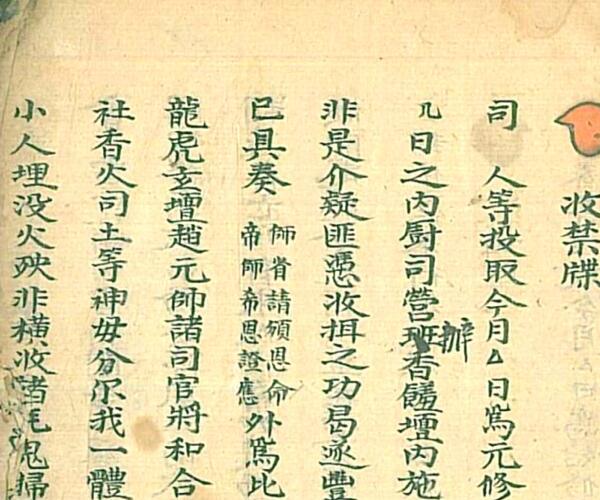 收禁牒
司 人等投取今月厶日爲元修
凡日之内厨司營班辦香饈壇内施
非是介疑匪憑收捐之功曷遂豊
已具奏
師省請頒恩命
帝師希恩證應
外爲比
龍虎玄壇趙元帥諸司官將和合
社香火司土等神毋分尓我一體
小人埋没火殃非横收諸毛鬼掃